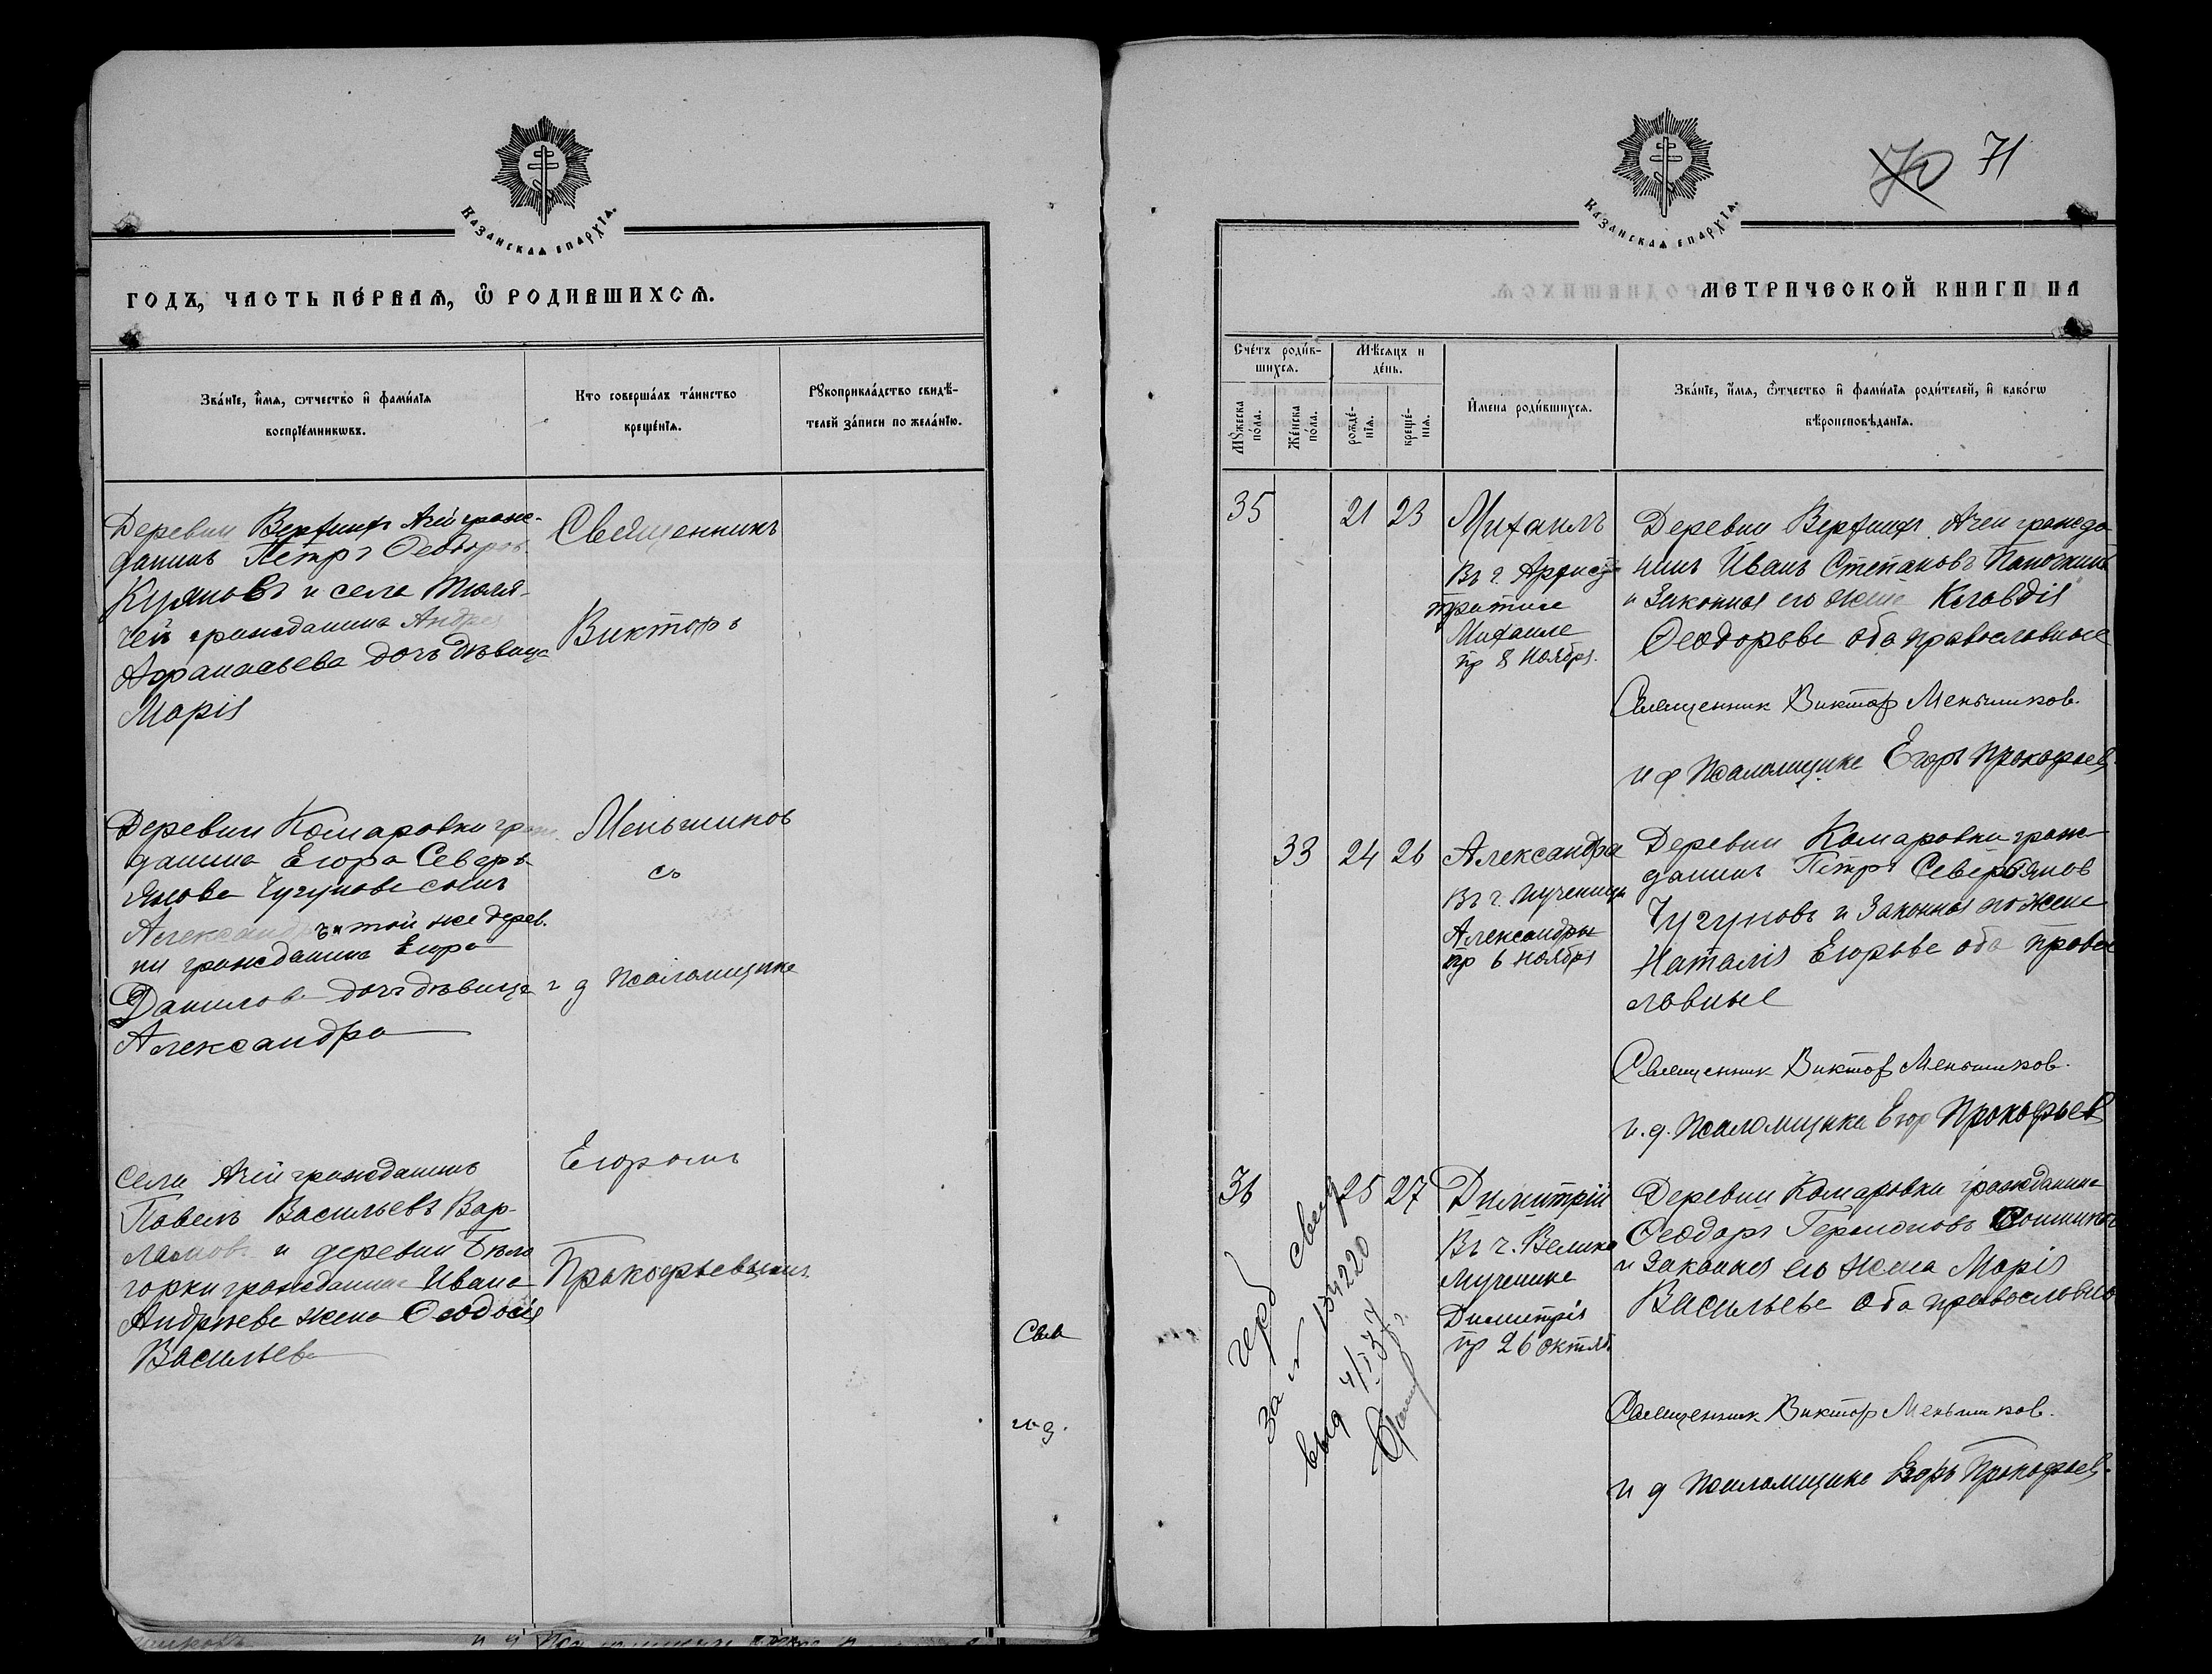 Казанская епархїя.
годъ, часть пе́рвая, ѡ҆ родившихсѧ.
Зва́нїе, и҆́мѧ, ѻтчество и҆ фами́лїѧ
воспрїе́мникѡвъ.
Кто соверша́лъ та́инство
креще́нїѧ.
Рꙋкоприкла́дство свидѣ́-
телей за́писи по жела́нїю.
Деревни Верхнихъ Ачей граж-
данинъ Петръ Ѳеодоров
Куяновъ и села Тюля-
чей гражданина Андрея
Афанасьева дочь дѣвица
Марія
Священникъ
Викторъ
Деревни Комаровки граж
данина Егора Северь
янова Чугунова сынъ
Александръ и той же дерев.
ни гражданина Егора
Данилова дочь дѣвица
Александра
Меньшиков
съ
и д псаломщика
Села Ачей гражданинъ
Павелъ Васильевъ Вар-
ламов и деревни Бѣло
горки гражданина Ивана
Андреева жена Ѳеодосія
Васильева
Егоромъ
Прокофьевымъ.
Свя
и д.
70 71
Казанская епархїя.
метрической книги на
Сче́тъ роди́в-
шихсѧ.
Мѣ́сѧцъ и
де́нь.
Мꙋжеска
по́ла.
Же́нска
по́ла.
рожде́-
нїѧ.
креще́-
нїѧ.
И҆мена роди́вшихсѧ.
Зва́нїе, и҆́мѧ, ѻ҆́тчество и҆ фами́лїѧ роди́телей, и҆ како́гѡ
вѣ́роисповѣ́данїѧ.
35 21 23 Михаилъ
Въ ч. Архис
тратига
Михаила
пр 8 ноября.
Деревни Верхнихъ Ачей гражда
нинъ Иванъ Степановъ Папочкинъ
и законная его жена Клавдія
Ѳеодорова оба православные
Священник Виктор Меньшиков.
и д псаломщика Егоръ Прокофьев.
33 24 26 Александра
Въ ч. мученицы
Александры
пр 6 ноября
Деревни Комаровки граж-
данинъ Петръ Северьянов
Чугуновъ и законная его жена
Наталія Егорова оба правос
лавные
Священник Виктор Меньшиков.
и. д. псаломщика Егор Прокофьев
36 25 27 Димитрій
Въ ч. Велико
мученика
Димитрія
пр 26 октяб
Деревни Комаровки гражданинъ
Ѳеодоръ Гермоновъ Сошников
и законная его жена Марія
Васильева оба православно
Священник Виктор Меньшиков.
и д псаломщика Егоръ Прокофьев.
герб свид
за №
выд 4/I 37 г.